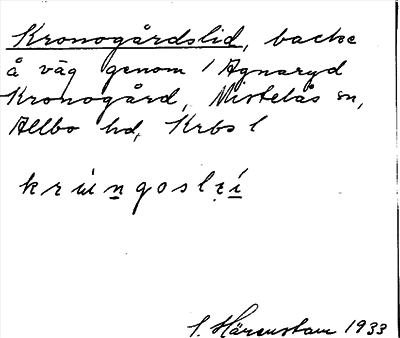 Kronogårdslid, backe
å väg genom 1 Agnaryd
Kronogård, Mistelås sn,
Allbo hd, Krbs l
krùngoslẹí
S. Härenstam 1933